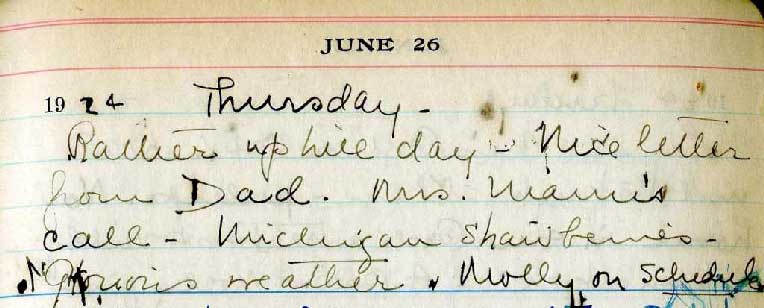 JUNE 26
1924 Thursday -
Rather up hill day - Nice letter
from Dad. Mrs. Mann's
call - Michigan Strawberries -
Glorious weather. Molly on Schedule